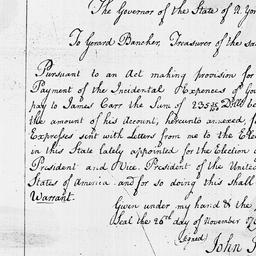 The Governor of the State of N. Yor
To Gerard Bancker, Treasurer of the sa
Pursuant to an Act making provision for
Payment of the Incidental Expences of Gov
pay to James Carr the Sum of 235 Doll
the amount of his Account, hereunto annexed, f
Expresses sent with Letters from me to the Elec
in this State lately appointed for the Election o
President and Vice President of the United
States of America and for so doing this shall
Warrant.
Given under my hand & the
Seal the 26th day of November 17
(Signed)
John